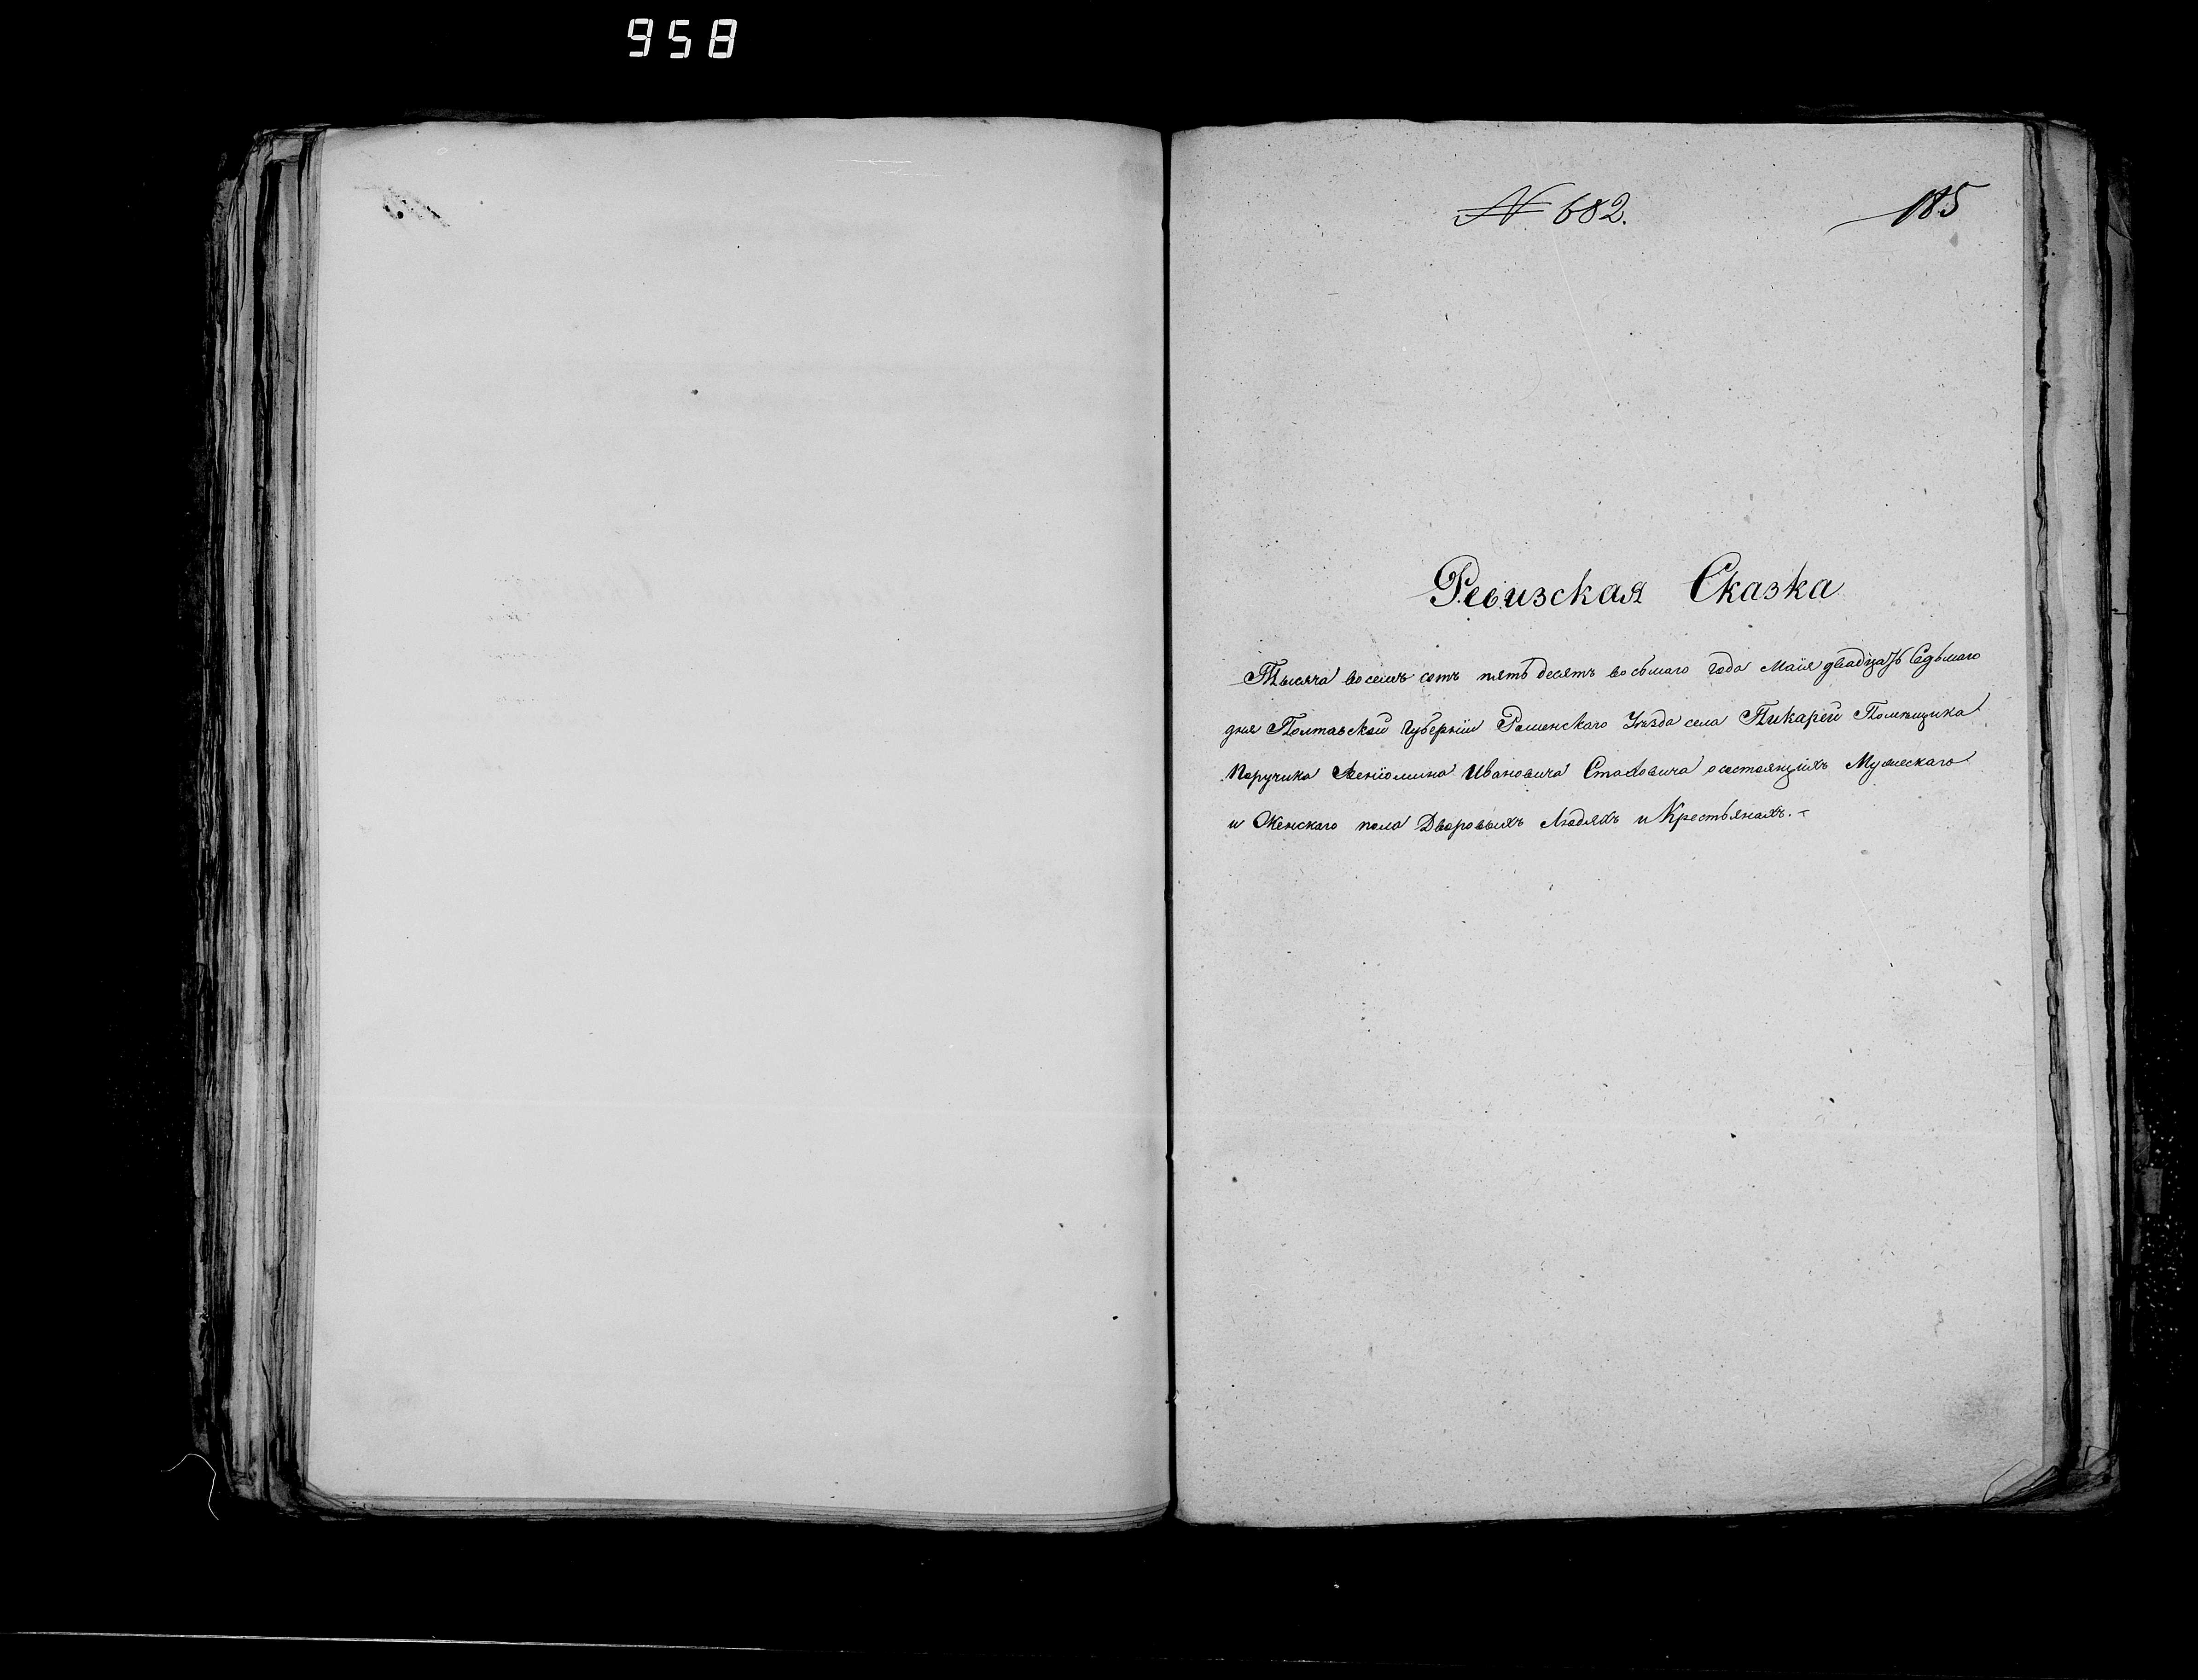 958
№ 682.
185
Ревизская Сказка
Тысяча восемь сотъ пятьдесятъ восьмаго года Маія двадцать Седьмаго
дня Полтавской Губерніи Роменскаго Уѣзда села Пикарей Помѣщика
Поручика Ивановича о состоящихъ Мужескаго
и Женскаго пола Дворовыхъ Людяхъ и Крестьянахъ.-